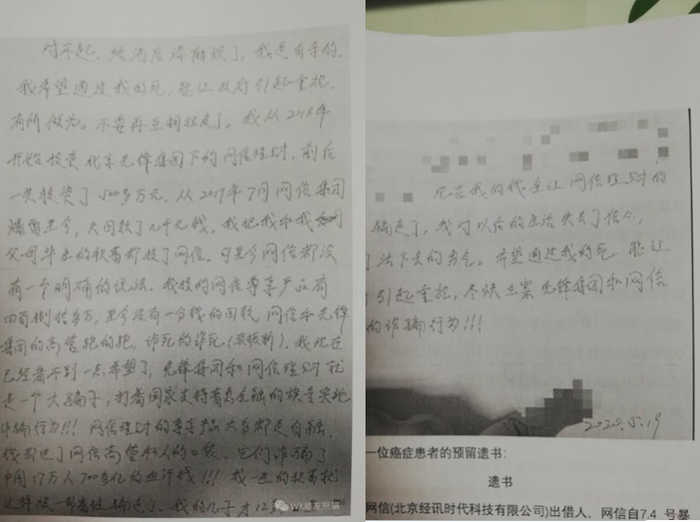 对不起，给酒店添麻烦了，我是自杀的，
我希望通过我的死，能让政府引起重视，
有所作为。不要再互相扯皮了。我从2015年
开始投资北京先锋集团下的网信理财，前后
一共投资了500多万元，从2019年7月网信集团
爆雷至今，只回款了几千元钱。我把我和我
父母毕生的积蓄都投了网信。可至今网信都没
有一个明确的说法。我投的网信尊享产品有
四百捌拾多万，至今没有一分钱的回款，网信和先锋
集团的高管跑的跑，诈死的诈死(张振新)。我现在
已经看不到一点希望了，先锋集团和网信理财就
是一个大骗子，打着国家支持普惠金融的旗号实施
诈骗行为!!! 网信理财的尊享产品大多都是自融，
钱都进了网信高管私人的口袋。它们诈骗了
中国17万人700多亿的血汗钱!!! 我一生的积蓄就
这样被一帮骗走了。我的儿子才12岁
WX难友熊猫
现在我的钱全让网信理财的
骗走了，我对以后的生活失去了信心，
活下去的勇气。希望通过我的死，能让
引起重视，尽快立案先锋集团和网信
的诈骗行为!!!
2020.5.19
一位癌症患者的预留遗书:
遗书
网信(北京经讯时代科技有限公司)出借人，网信自7.4 号暴